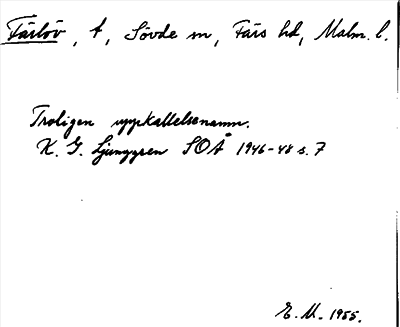 Färlöv, t, Sövde sn, Färs hd, Malm. l.
Troligen uppkallelsenamn.
K. G. Ljunggren SOÅ 1946-48 s. 7
E. M. 1955.